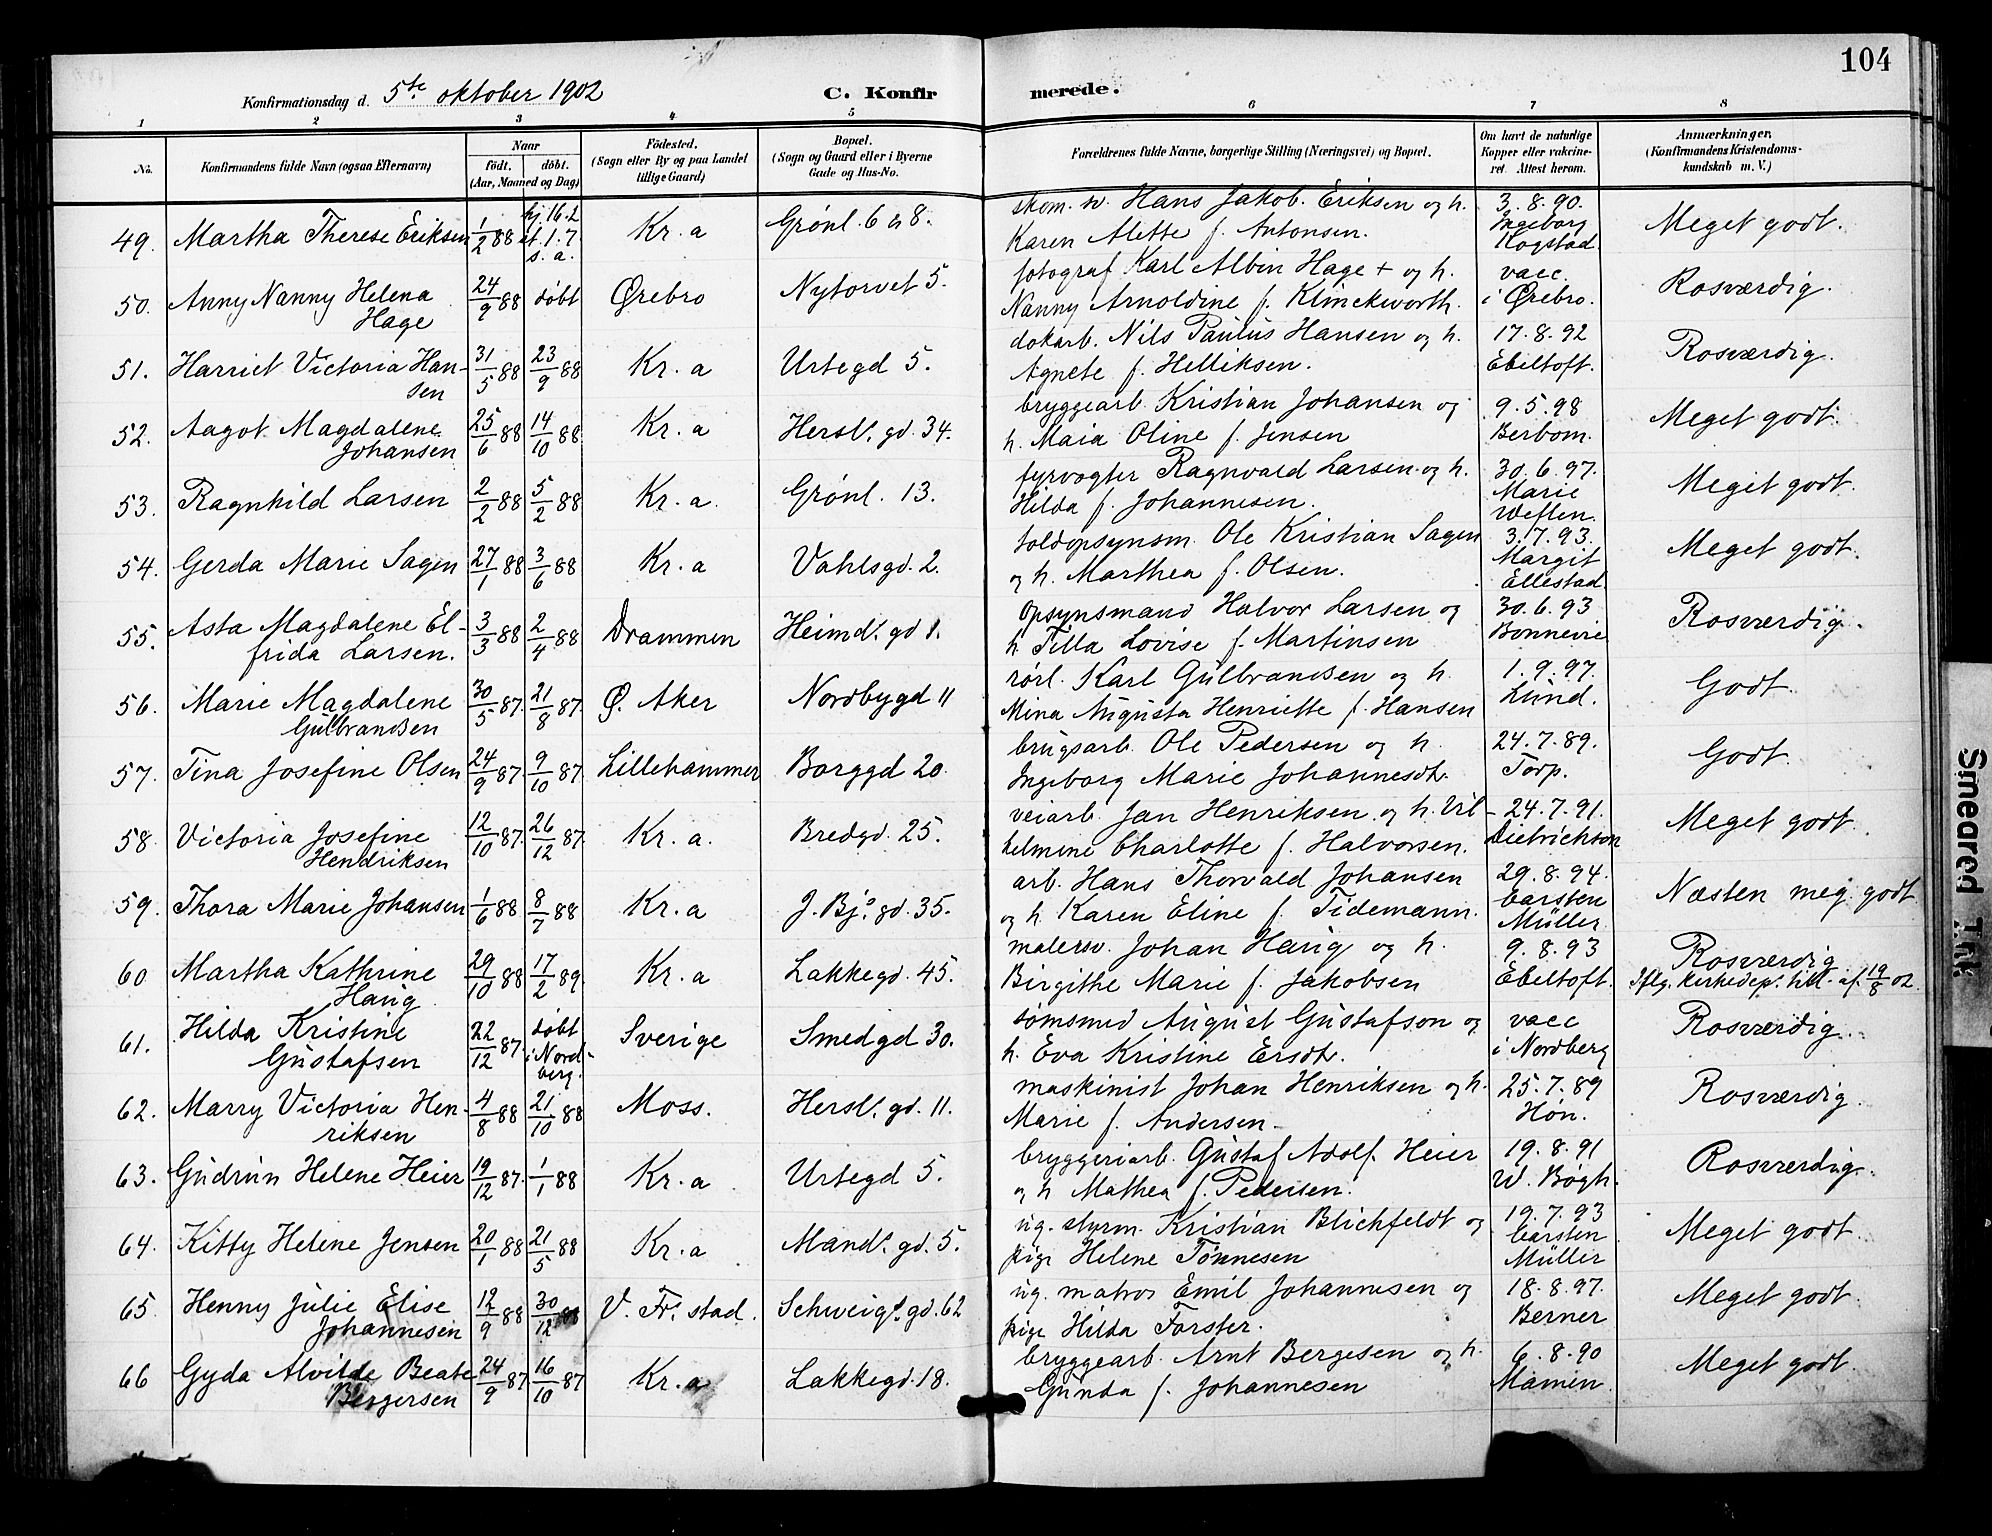 104
Konfirmationsdag d. 5te oktober 1902
C. Konfir
merede.
1 2 3 4 5 6 7 8
No. Konfirmandens fulde Navn (ogsaa Efternavn)
Naar
født. døbt.
(Aar, Maaned og Dag)
Fødested.
(Sogn eller By og paa Landet
tillige Gaard)
Bopæl.
(Sogn og Gaard eller i Byerne
Gade og Hus-No.
Forældrenes fulde Navne, borgerlige Stilling (Næringsvei) og Bopæl.
Om havt de naturlige
Kopper eller vakcine-
ret. Attest herom.
Anmærkninger.
(Konfirmandens Kristendoms-
kundskab m. V.)
49. Martha Therese Eriksen 1/2 88 hj. 16.2 st. 1.7. s. a. Kr. a Grønl. 6 & 8. skom. sv. Hans Jakob Eriksen og h. 3.8.90. Meget godt.
Karen Alette f. Antonsen. Ingeborg Kogstad.
50. Anny Nanny Helena 24/9 88 døbt Ørebro Nytorvet 5. fotograf Karl Albin Hage + og h. vacc. Rosværdig.
Hage Nanny Arnoldine f. Klinckworth. i Ørebro.
51. Harriet Victoria Han- 31/5 88 23/9 88 Kr. a Urtegd 5. dokarb. Nils Paulus Hansen og h. 17.8.92 Rosværdig.
sen Agnete f. Helliksen. Ebeltoft.
52. Aagot Magdalene 25/6 88 14/10 88 Kr. a Hersl. gd. 34. bryggearb. Kristian Johansen og 9.5.98 Meget godt.
Johansen h. Maia Oline f. Jensen Berbom.
53. Ragnhild Larsen 2/2 88 5/2 88 Kr. a Grønl. 13. fyrvogter Ragnvald Larsen og h. 30.6.97. Meget godt.
Hilda f. Johannesen. Marie Weflen.
54. Gerda Marie Sagen 27/1 88 3/6 88 Kr. a Vahlsgd. 2. toldopsynsm. Ole Kristian Sagen 3.7.93. Meget godt.
og h. Marthea f. Olsen. Margit Ellestad
55. Asta Magdalene El- 3/3 88 2/4 88 Drammen Heimd. gd 1. Opsynsmand Halvor Larsen og 30.6.93 Rosværdig.
frida Larsen. h. Tilla Lovise f. Martinsen Bonnevie
56. Marie Magdalene 30/5 87. 21/8 87. Ø. Aker Nordbygd 11 rørl. Karl Gulbrandsen og h. 1.9.97. Godt.
Gulbrandsen Mina Augusta Henriette f. Hansen Lund.
57. Tina Josefine Olsen 24/9 87. 9/10 87. Lillehammer Borggd 20. brugsarb. Ole Pedersen og h. 24.7.89. Godt.
Ingeborg Marie Johannesdt. Torp.
58. Victoria Josefine 12/10 87. 26/12 87. Kr. a. Bredgd. 25. veiarb. Jan Henriksen og h. Vil- 24.7.91. Meget godt.
Hendriksen helmine Charlotte f. Halvorsen. Dietrichson
59. Thora Marie Johansen 1/6 88 8/7 88 Kr. a J. Bj. gd. 35. arb. Hans Thorvald Johansen 29.8.94. Næsten meg. godt
og h. Karen Eline f. Tidemann. Carsten Müller
60 Martha Kathrine 29/10 88 17/2 89 Kr. a Lakkegd. 45. malersv. Johan Haug og h. 9.8.93 Rosværdig
Haug Birgithe Marie f. Jakobsen Ebeltoft. Iflg. Kirkedep. till. af 19/8 02.
61. Hilda Kristine 22/12 87. døbt i Nord-berg. Sverige Smedgd 30. sømsmed August Gustafson og vacc Rosværdig.
Gustafsen h. Eva Kristine Ersdt. i Nordberg
62. Marry Victoria Hen- 4/8 88 21/10 88 Moss. Hersl. gd. 11. maskinist Johan Henriksen og h. 25.7.89 Rosværdig.
riksen Marie f. Andersen. Høn.
63. Gudrun Helene Heier 19/12 87. 1/1 88 Kr. a Urtegd 5. bryggeriarb. Gustaf Adolf Heier 19.8.91 Rosværdig.
og h. Mathea f. Pedersen. W. Bøgh.
64. Kitty Helene Jensen 20/1 88 21/5 88 Kr. a Mands. gd. 5. ug. styrm. Kristian Blichfeldt og 19.7.93 Meget godt.
pige Helene Tønnesen Carsten Müller
65. Henny Julie Elise 12/9 88 30/12 88 V. Fr. stad. Schweigs. gd. 62 ug. matros Emil Johannesen og 18.8.97. Meget godt.
Johannesen pige Hilda Forster. Berner
66 Gyda Alvilde Beate 24/9 87 16/10 87 Kr. a Lakkegd. 18. bryggearb. Arnt Bergesen og h. 6.8.90 Meget godt.
Bergersen Gunda f. Johannesen Mamen.
Smeared Ink